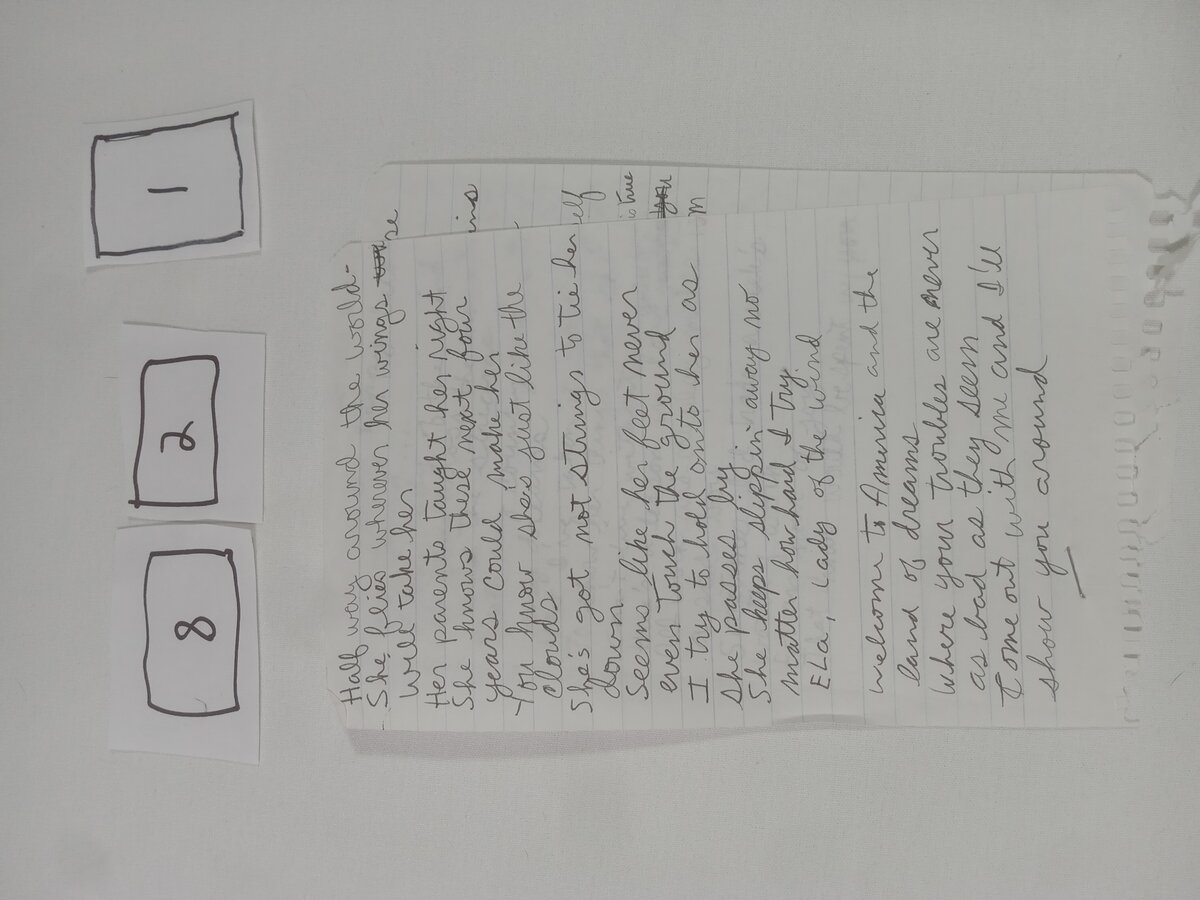 8 2 1
Half way around the world-
She flies wherever her wings
Will take her
Her parents taught her right
She knows these next four
years could make her
You know she's just like the
clouds
She's got not strings to tie her
down
Seems like her feet never
even touch the ground
I try to hold onto her as
she passes by
She keeps slippin away no
matter how hard I try
Ela, Lady of the wind
Welcome to America and the
land of dreams
Where your troubles are never
as bad as they seem
Come out with me and I'll
show you around
is true